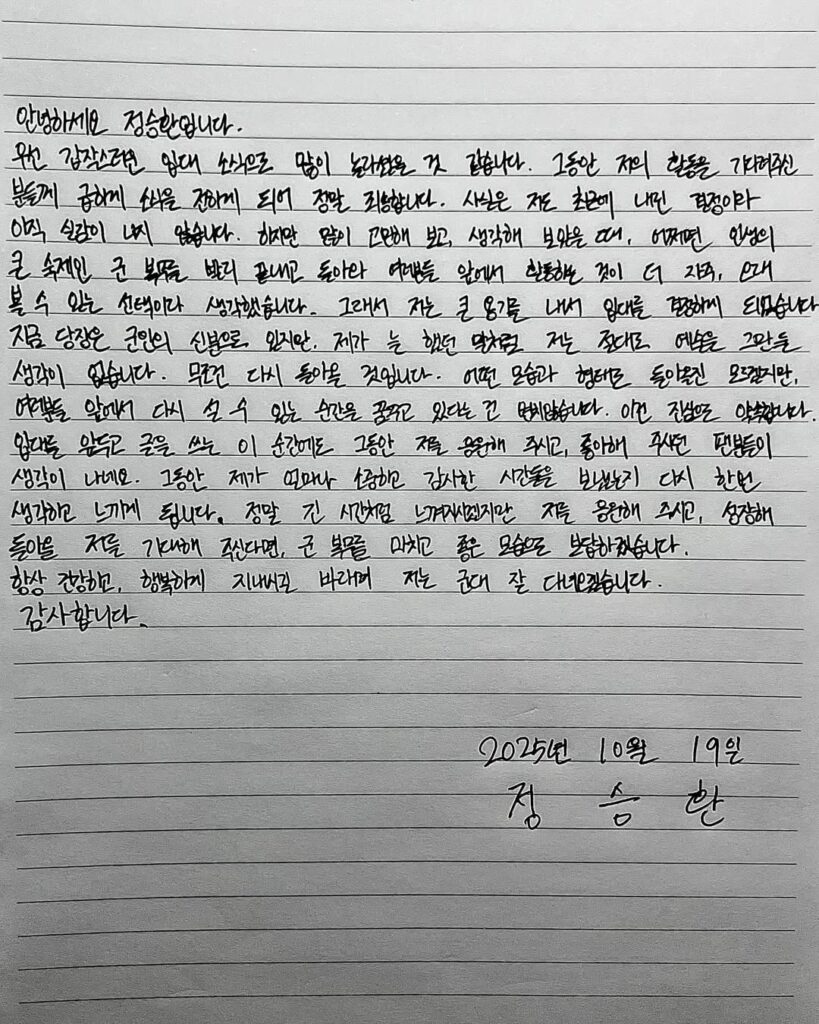 안녕하세요 정승환입니다.
우선 갑작스러운 입대 소식으로 많이 놀라셨을 것 같습니다. 그동안 저의 활동을 기다려주신
분들께 급하게 소식을 전하게 되어 정말 죄송합니다. 사실은 저도 최근에 내린 결정이라
아직 실감이 나지 않습니다. 하지만 많이 고민해 보고, 생각해 보았을 때, 어쩌면 인생의
큰 숙제인 군 복무를 빨리 끝내고 돌아와 여러분들 앞에서 활동하는 것이 더 자주, 오래
볼 수 있는 선택이라 생각했습니다. 그래서 저는 큰 용기를 내서 입대를 결정하게 되었습니다
지금 당장은 군인의 신분으로 있지만. 제가 늘 했던 말처럼 저는 절대로 예술을 그만둘
생각이 없습니다. 무조건 다시 돌아올 것입니다. 어떤 모습과 형태로 돌아올진 모르겠지만,
여러분들 앞에서 다시 설 수 있는 순간을 꿈꾸고 있다는 건 변치않습니다. 이건 진심으로 약속합니다.
입대를 앞두고 글을 쓰는 이 순간에도 그동안 저를 응원해 주시고, 좋아해 주시던 팬분들이
생각이 나네요. 그동안 제가 얼마나 소중하고 감사한 시간들을 보냈는지 다시 한번
생각하고 느끼게 됩니다. 정말 긴 시간처럼 느껴지시겠지만 저를 응원해 주시고, 성장해
돌아올 저를 기대해 주신다면, 군 복무를 마치고 좋은 모습으로 보답하겠습니다.
항상 건강하고, 행복하게 지내시길 바라며 저는 군대 잘 다녀오겠습니다.
감사합니다.
2025년 10월 19일
정 승 환